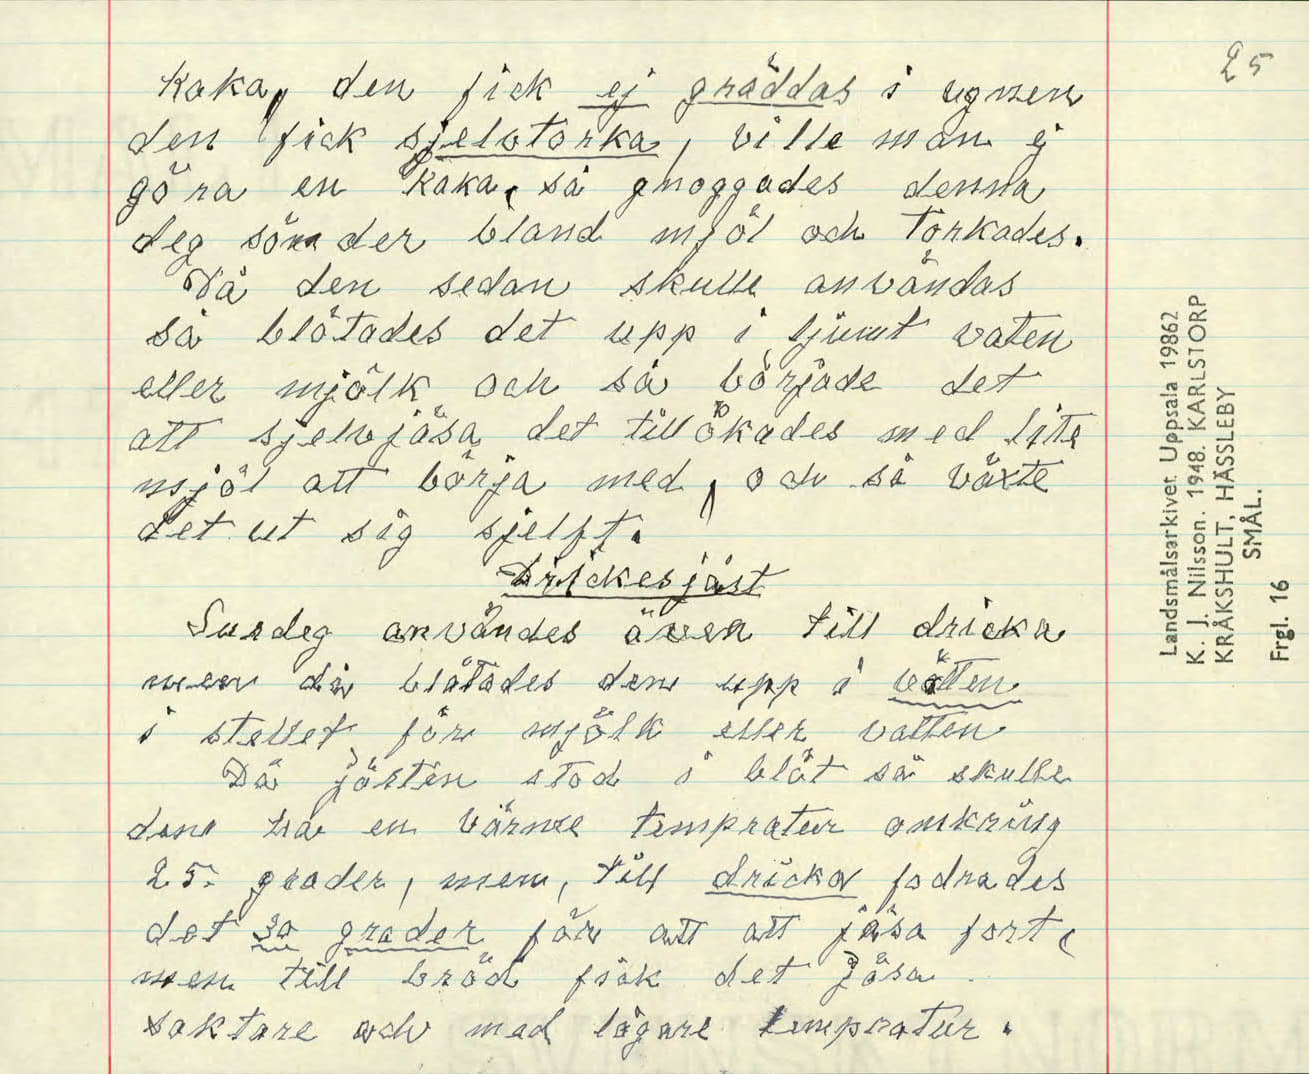 25
kaka, den fick ej gräddas i ugnen
den fick sjelvtorka, ville man ej
göra en kaka, så gnoggades denna
deg sönder bland mjöl och torkades.
Då den sedan skulle användas
så blötades det upp i ljumt vaten
eller mjölk och så började det
att sjelvjäsa det tillökades med lite
mjöl att börja med, och så växte
det ut sig sjelft.
Drickesjäst
Surdeg användes även till dricka
men då blötades den upp i vötten
i stellet för mjölk eller vatten
Då jästen stod i blöt så skulle
den ha en värme tempratur omkring
25. grader, men, till dricka fodrades
det 30 grader för att att jäsa fort,
men till bröd fick det jäsa
saktare och med lägare tempratur.
Landsmålsarkivet Uppsala 19862
K. J. Nilsson. 1948. KARLSTORP
KRÅKSHULT, HÄSSLEBY
SMÅL.
Frgl. 16